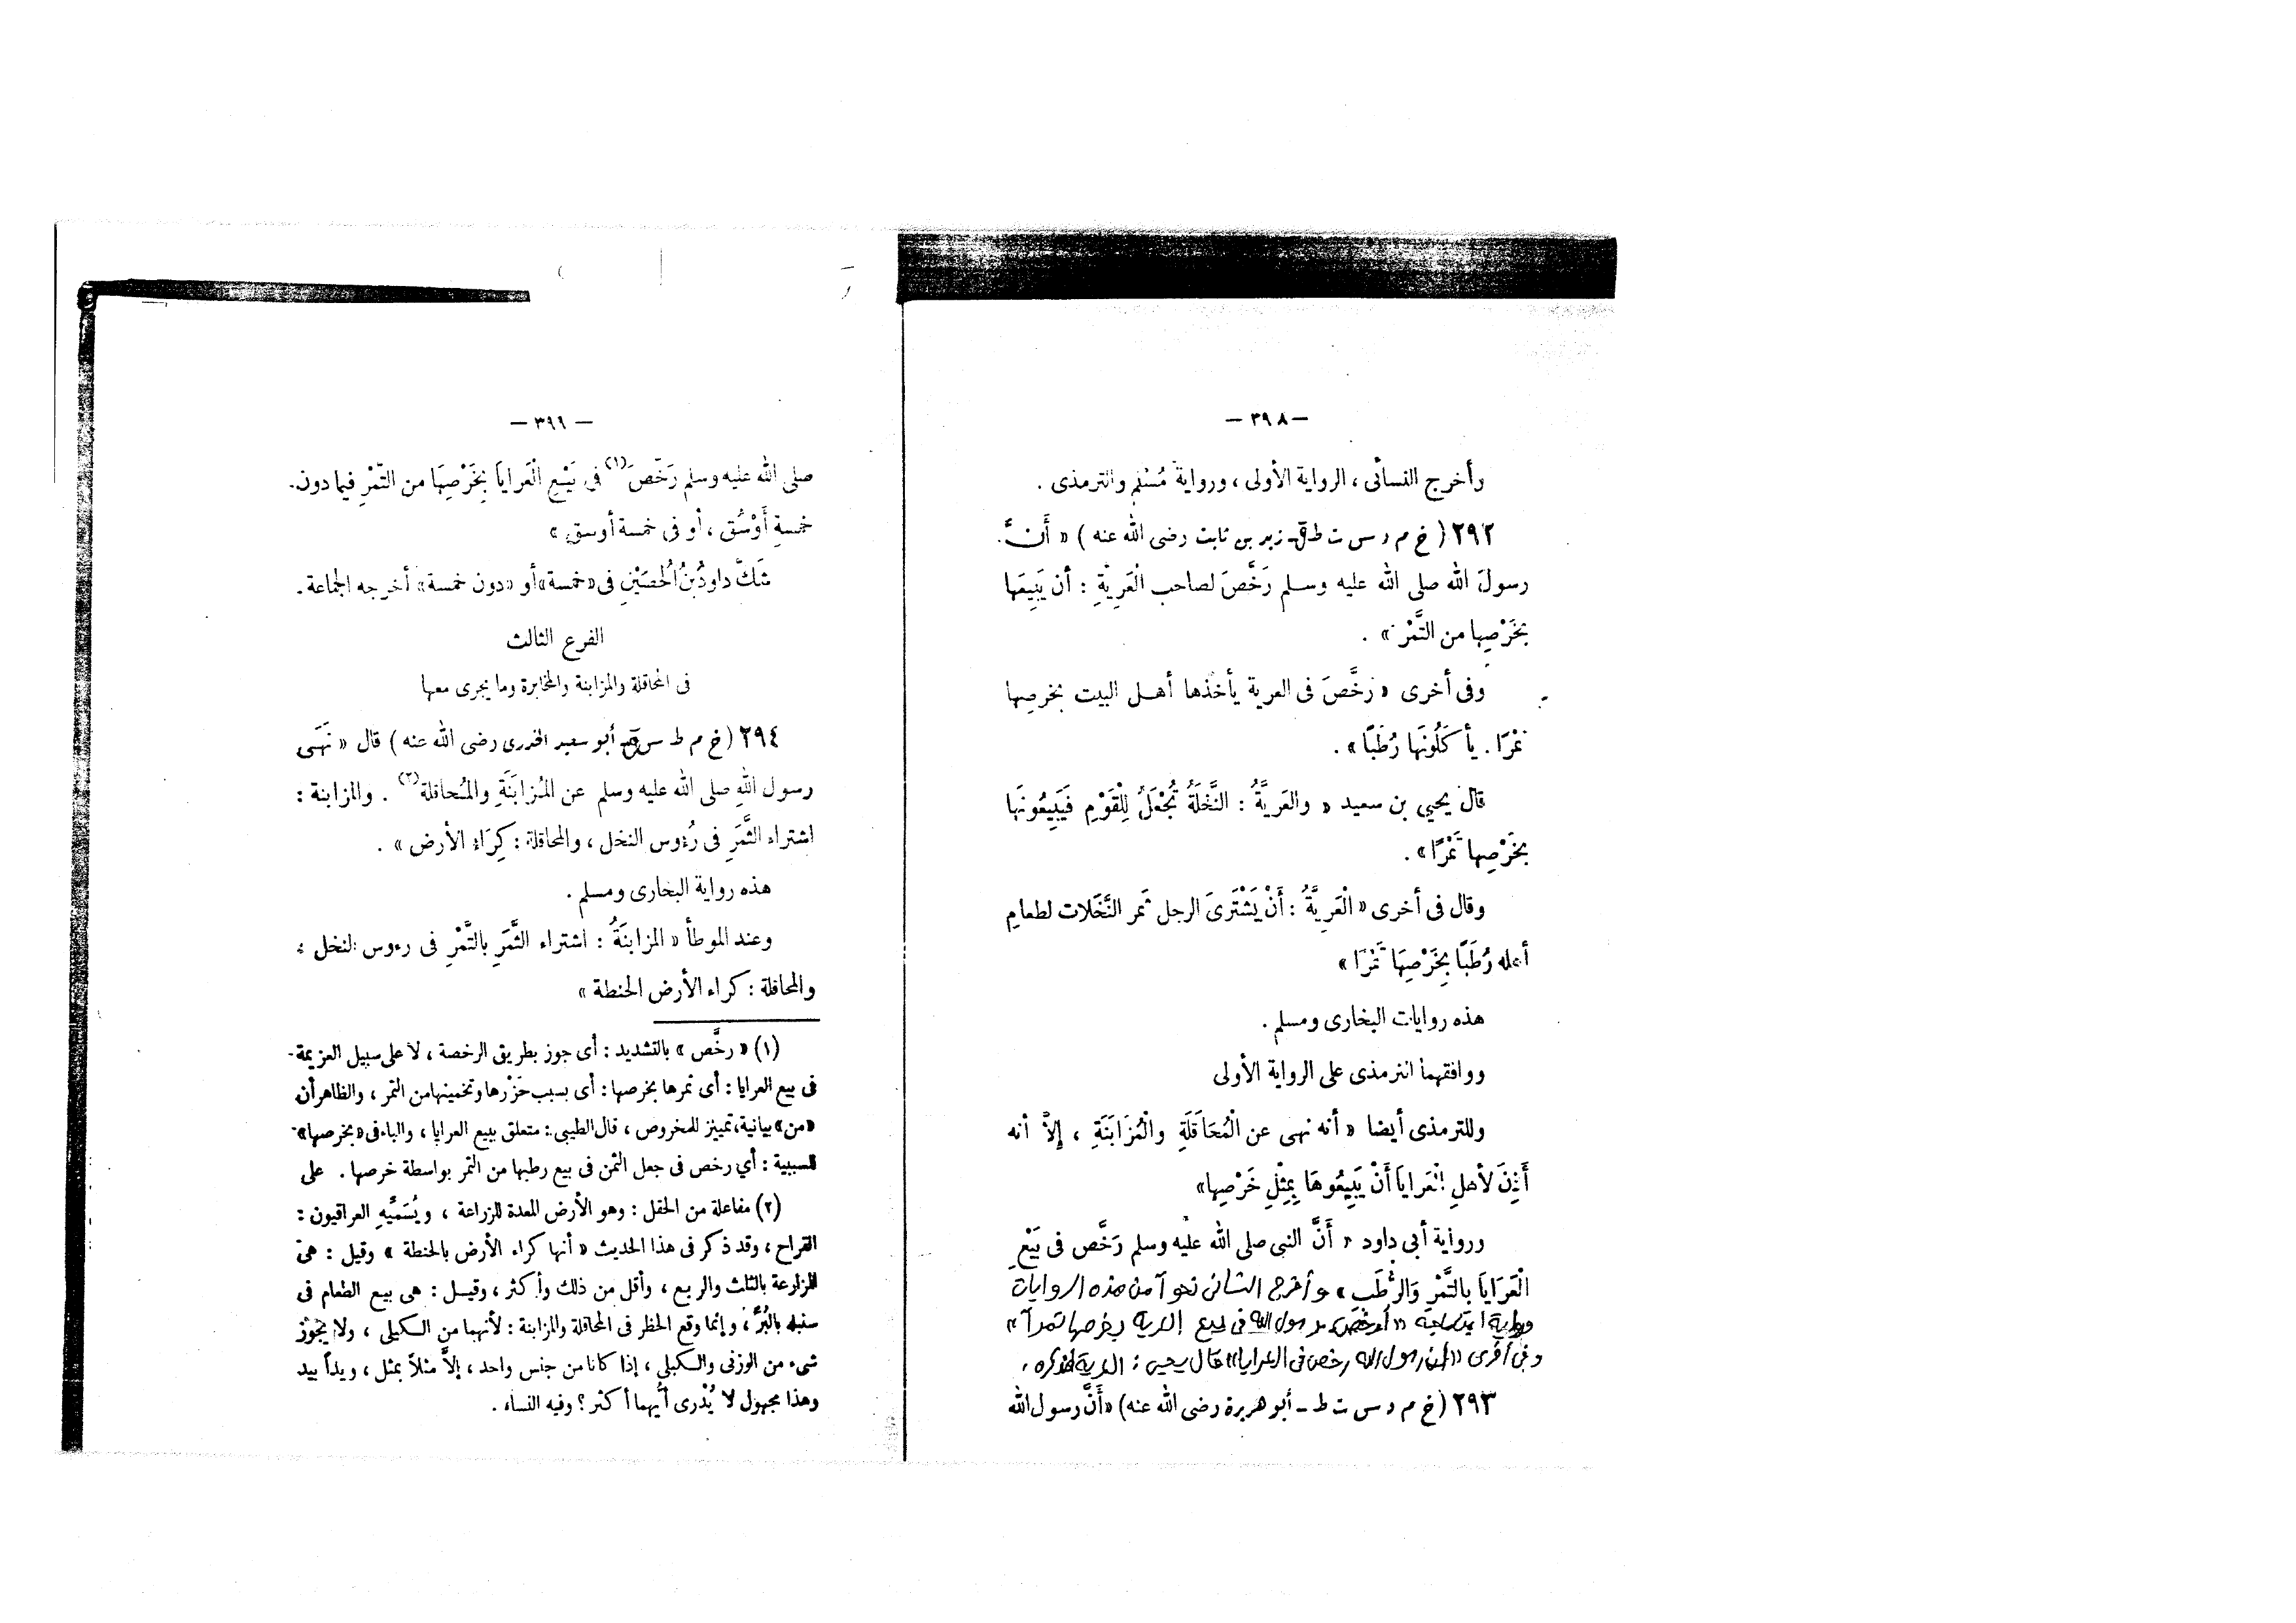 — ٣٩٨ —
وأخرج النسائى ، الرواية الأولى ، ورواية مُسْلم والترمذى .
٢٩٢ ( خ م د س ت ط ق ـ زيد بن ثابت رضى الله عنه ) « أَنَّ
رسولَ الله صلى الله عليه وسلم رَخَّصَ لصاحب الْعَرِيَّةِ : أن يَبِيعَها
بخَرْصِها من التَّمْر » .
وفى أخرى « رَخَّصَ فى العرية يأخذها أهل البيت بخرصها
تمْرًا . يأكُلُونَها رُطَبًا » .
قال يحيي بن سعيد « والعَرِيَّةُ : النَّخْلَةُ تُجْعَلُ لِلْقَوْمِ فَيَبِيعُونَهَا
بخَرْصِها تَمْرًا » .
وقال فى أخرى « الْعَرِيَّةُ : أَنْ يَشْتَرىَ الرجل ثمر النَّخَلات لطعامِ
أهله رُطَبًا بِخَرْصِهَا تَمْرًا »
هذه روايات البخارى ومسلم .
ووافقهما الترمذى على الرواية الأولى
وللترمذى أيضا « أنه نهى عن الْمُحَاقَلَةِ والْمُزَابَنَةِ ، إِلاَّ أنه
أَذِنَ لأهلِ الْعَرايَا أَنْ يَبِيعُوهَا بِمِثْلِ خَرْصِها »
ورواية أبى داود « أَنَّ النبى صلى الله عليه وسلم رَخَّص فى بَيْعِ
الْعَرَايَا بالتَّمْرِ وَالرُّطَب » وأخرج النسائى نحوا من هذه الروايات
« رخص رسول الله فى بيع العرية بخرصها تمرآ »
وفى أخرى « أن رسول الله رخص فى العرايا » قال يحيى : العرية فذكره .
٢٩٣ ( خ م د س ت ط ـ أبو هريرة رضى الله عنه ) « أَنَّ رسول الله
— ٣٩٩ —
صلى الله عليه وسلم رَخَّصَ (١) فى بَيْعِ الْعَرايَا بِخَرْصِهَا من التَّمْرِ فيما دون
خمسةِ أَوْسُق ، أو فى خمسة أوسق »
شَكَّ داودُ بنُ الْحُصَيْنِ فى « خمسة » أو « دون خمسة » أخرجه الجماعة .
الفرع الثالث
فى المحاقلة والمزابنة والمخابرة وما يجرى معها
٢٩٤ ( خ م ط س ق ـ أبو سعيد الخدرى رضى الله عنه ) قال « نَهَى
رسول اللهِ صلى الله عليه وسلم عن المُزابَنَةِ والمُحاقلة (٢) . والمزابنة :
اشتراء الثَّمَرِ فى رُءوس النخل ، والمحاقلة : كِرَاءِ الأرض » .
هذه رواية البخارى ومسلم .
وعند الموطأ « المزابنَةُ : اشتراء الثَّمَرِ بالتَّمْرِ فى رءوس النخل ،
والمحاقلة : كراء الأرض الحنطة »
(١) « رخَّص » بالتشديد : أى جوز بطريق الرخصة ، لا على سبيل العزيمة
فى بيع العرايا : أى تمرها بخرصها : أى بسبب حَزْرها وتخمينها من التمر ، والظاهر أن
« من » بيانية ، تمييز للمخروص ، قال الطيبى : متعلق ببيع العرايا ، والباء فى « بخرصها »
للسببية : أي رخص فى جعل الثمن فى بيع رطبها من التمر بواسطة خرصها . على
(٢) مفاعلة من الحقل : وهو الأرض المعدة للزراعة ، ويُسَمِّيهِ العراقيون :
القراح ، وقد ذكر فى هذا الحديث « أنها كراء الأرض بالحنطة » وقيل : هى
المزارعة بالثلث والربع ، وأقل من ذلك وأكثر ، وقيل : هى بيع الطعام فى
سنبله بالبُرِّ ، وإنما وقع الحظر فى المحاقلة والمزابنة : لأنهما من الكيلى ، ولا يجوز
شىء من الوزنى والكيلي ، إذا كانا من جنس واحد ، إلاَّ مثلاً بمثل ، ويداً بيد
وهذا مجهول لا يُدْرى أيُّهما أكثر ؟ وفيه النساء .